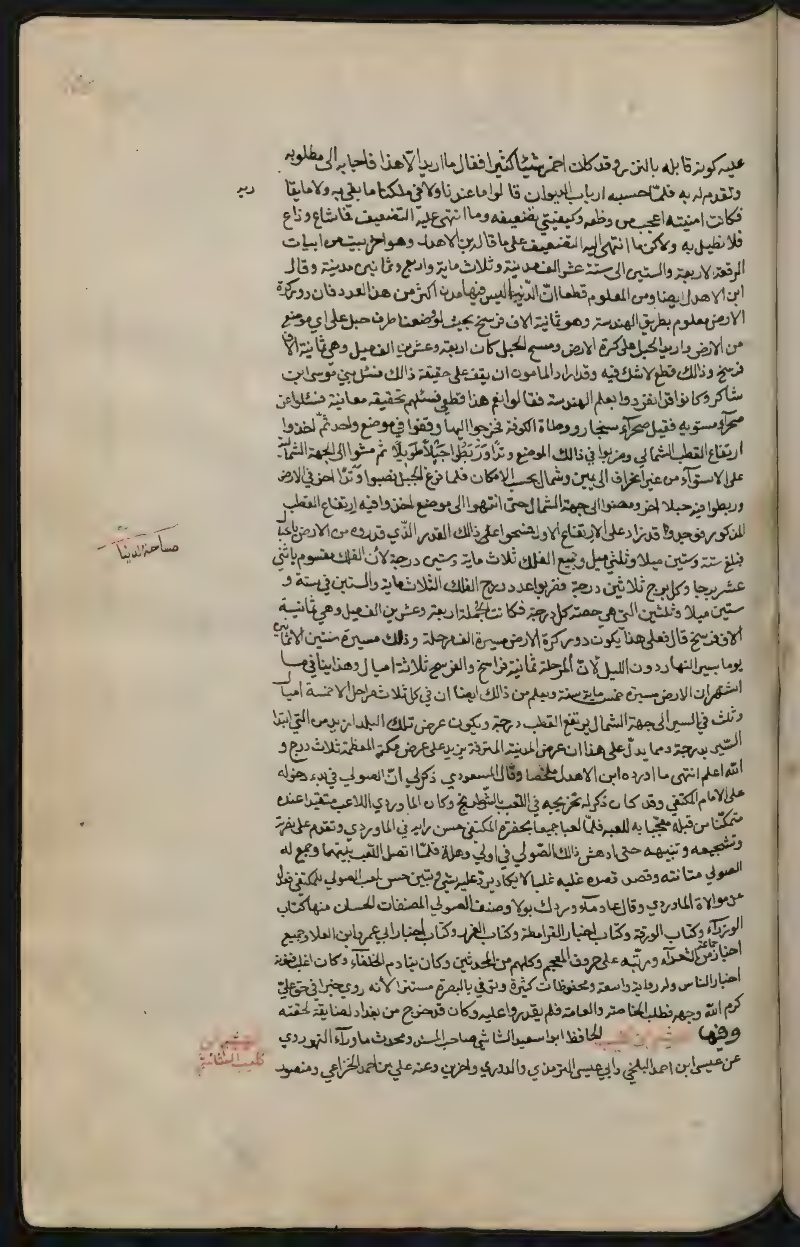 عليه كونه قابله بالنزر وقد كان اضمر شيئا كثيرا فقال ما اريد الا هذا فاجابه الى مطلوبه
وتقدم له به فلما حسبه ارباب الديوان قالوا ما عندنا ولا في ملكنا ما يفي به ولا ما يقا
ربه
فكانت امنيته اعجب من وضعه وكيفيتي تضعيفه وما انتهى عليه التضعيف فاشاع وذاع
فلا نطيل به ولاكن ما انتهى اليه التضعيف على ما قال ابن الاهدل وهو اخر بيت من ابيات
الرقعة لاربعة والستين الى ستة عشر الف مدينة وثلاث ماية واربع وثمانين مدينة وقال
ابن الاهدل ايضا ومن المعلوم قطعا ان الدنيا ليس فيها مدن اكثر من هذا العدد فان دور كرة
الارض معلوم بطريق الهندسة وهو ثمانية الاف فرسخ بحيث لو وضعنا طرف حبل على اي موضع
من الارض وادير الحبل على كرة الارض ومسح الحبل كان اربعة وعشرين الف ميل وهي ثمانية الاف
فرسخ وذالك قطع لا شك فيه وقد اراد المامون ان يقف على حقيقة ذالك فسئل بني موسى ابن
شاكر وكانوا قد انفردوا بعلم الهندسة فقالوا نعم هذا قطعي فسئلهم تحقيقه معاينة فسئلوا عن
صحراء مستوية فقيل صحراء سنجار ووطاة الكوفة فخرجوا اليها ووقفوا في موضع واحد ثم اخذوا
ارتفاع القطب الشمالي وضربوا في ذالك الموضع وتدا وربطوا حبلا طويلا ثم مشوا الى الجهة الشمالية
على الاستواء من غير انحراف الى يمين وشمال بحسب الامكان فلما فرغ الحبل نصبوا وتدا اخر في الارض
وربطوا فيه حبلا اخر ومضوا الى جهة الشمال حتى انتهوا الى موضع اخذوا فيه ارتفاع القطب
المذكور فوجدوه قد زاد على الارتفاع الاول فمسحوا على ذالك القدر الذي قدروه من الارض بالحبا
مساحة الدنيا
فبلغ ستة وستين ميلا وثلثي ميل وجميع الفلك ثلاث ماية وستين درجة لأن الفلك مقسوم باثني
عشر برجا وكل برج ثلاثين درجة فضربوا عدد درج الفلك الثلاث ماية والستين في ستة و
ستين ميلا وثلثين التي هي حصة كل درجة فكانت الجملة اربعة وعشرين الف ميل وهي ثمانية
الاف فرسخ قال فعلى هذا يكون دور كرة الارض مسيرة الف مرحلة وذلك مسيرة سنتين الا ثمانين
يوما بسير النهار دون الليل لان المرحلة ثمانية فراسخ والفرسخ ثلاثة اميال وهذا ينافي ما
اشتهر ان الارض مسيرة خمس ماية سنة ويعلم من ذالك ايضا ان في كل ثلاث مراحل الا خمسة اميا
وثلث في السير الى جهة الشمال يرتفع القطب درجة ويكون عرض تلك البلد ازيد من التي ابتدا
السير بدرجة ومما يدل على هذا ان عرض المدينة المشرفة يزيد على عرض مكة المعظمة ثلاث درج و
الله اعلم انتهى ما اورده ابن الاهدل ملخصا وقال المسعودي ذكر لي ان الصولي في بدء دخوله
على الامام المكتفي وقد كان ذكر له تخريجه في اللعب بالشطرنج وكان الماوردي اللاعب متقيدا عنده
متمكنا من قبله معجبا به للعبه فلما لعبا جميعا بحضرة المكتفي حسن رايه في الماوردي وتقدم على نصرته
وتشجيعه وتنبيهه حتى ادهش ذالك الصولي في اولي وهلة فلما اتصل اللعب بينهما وجمع له
الصولي متانته وقصد قصده غلبه غلبا لا يكاد يرد عليه شي وتبين حسن لعب الصولي للمكتفي فعدل
عن موالاة الماوردي وقال عاد ماء وردك بولا وصنف الصولي المصنفات الحسان منها كتاب
الوزراء وكتاب الورقة وكتاب اخبار القرامطة وكتاب الغرر وكتاب اخبار ابي عمرو ابن العلا وجميع
اخبار جماعة من الشعراء ورتبه على حروف المعجم وكلهم من المحدثين وكان ينادم الخلفاء وكان اغلب فنه
اخبار الناس وله رواية واسعة ومحفوظات كثيرة وتوفي بالبصرة مستترا لانه روى خبرا في حق علي
كرم الله وجهه فطلب الخاصة والعامة فلم يقدروا عليه وكان قد خرج من بغداد لضايقة لحقته
وفيها الهيثم بن كليب الحافظ ابو اسعيد الشاشي صاحب المسند ومحدث ماوراء النهر روى
الهيثم بن
كليب الشاشي
عن عيسى ابن احمد البلخي وابي عيسى الترمذي والدوري واخرين وعنه علي بن احمد الخزاعي ومنصور